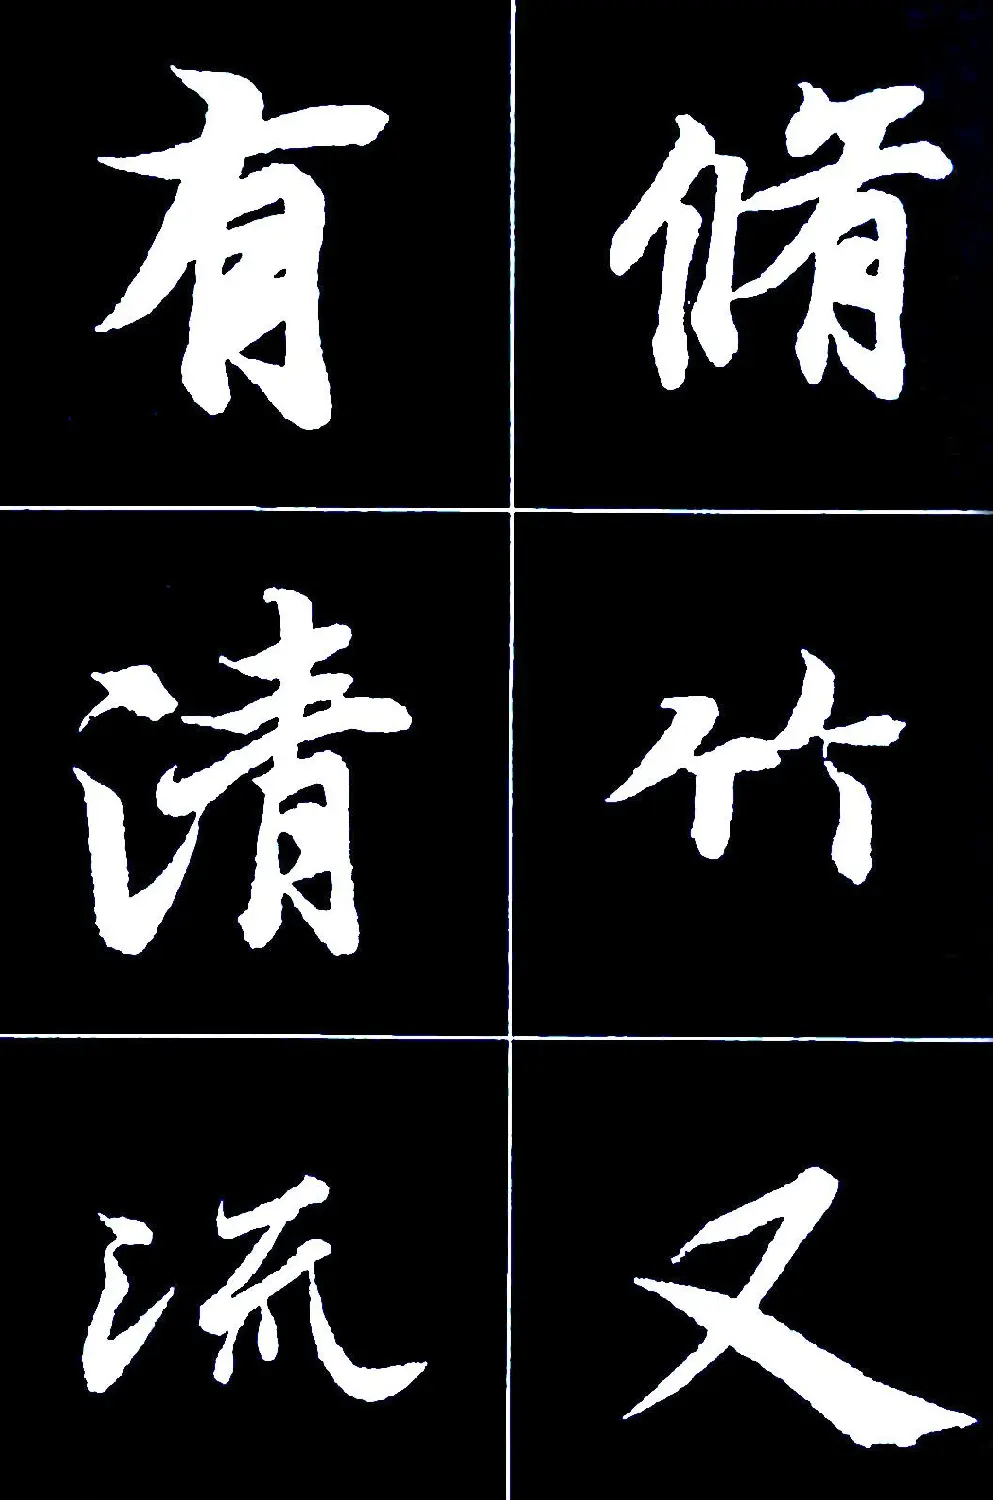 脩竹又
有清流